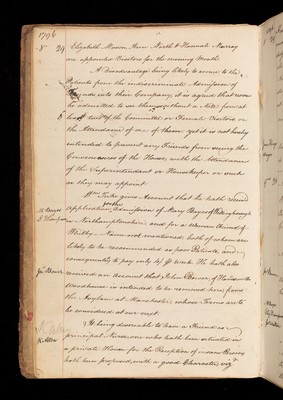 1796
8 29 Elizabeth Mason, Ann North & Hannah Murray
are appointed Visitors for the ensuing Month
A disadvantage being likely to accrue to the
Patients from the indiscriminate Admission of
Friends into their Company, it is agreed that none
be admitted to see them without a Note from at
6 least two of the Committee or Female Visitors or
the Attendance of one of them yet it is not hereby
intended to prevent any Friends from seeing the
Conveniences of the House with the Attendance
of the Superintendant or Housekeeper or such
as they may appoint
Wm Tuke gives Account that he hath recd
Application for the Admission of Mary Bryer of Wellingborough
in Northamptonshire and for a Woman Friend of
Whitby Name not mentioned both of whom are
likely to be recommended as poor Patients, and
consequently to pay only 4/ Week He hath also
received an Account that John
Woodhouse is intended to be removed here from
the Asylum at Manchester whose Terms are to
be considered at our next
It being desireable to have a Friend as a
principal Nurse, one who hath been entrusted in
a private House for the Reception of insane Persons
hath been proposed, with a good Character, viz